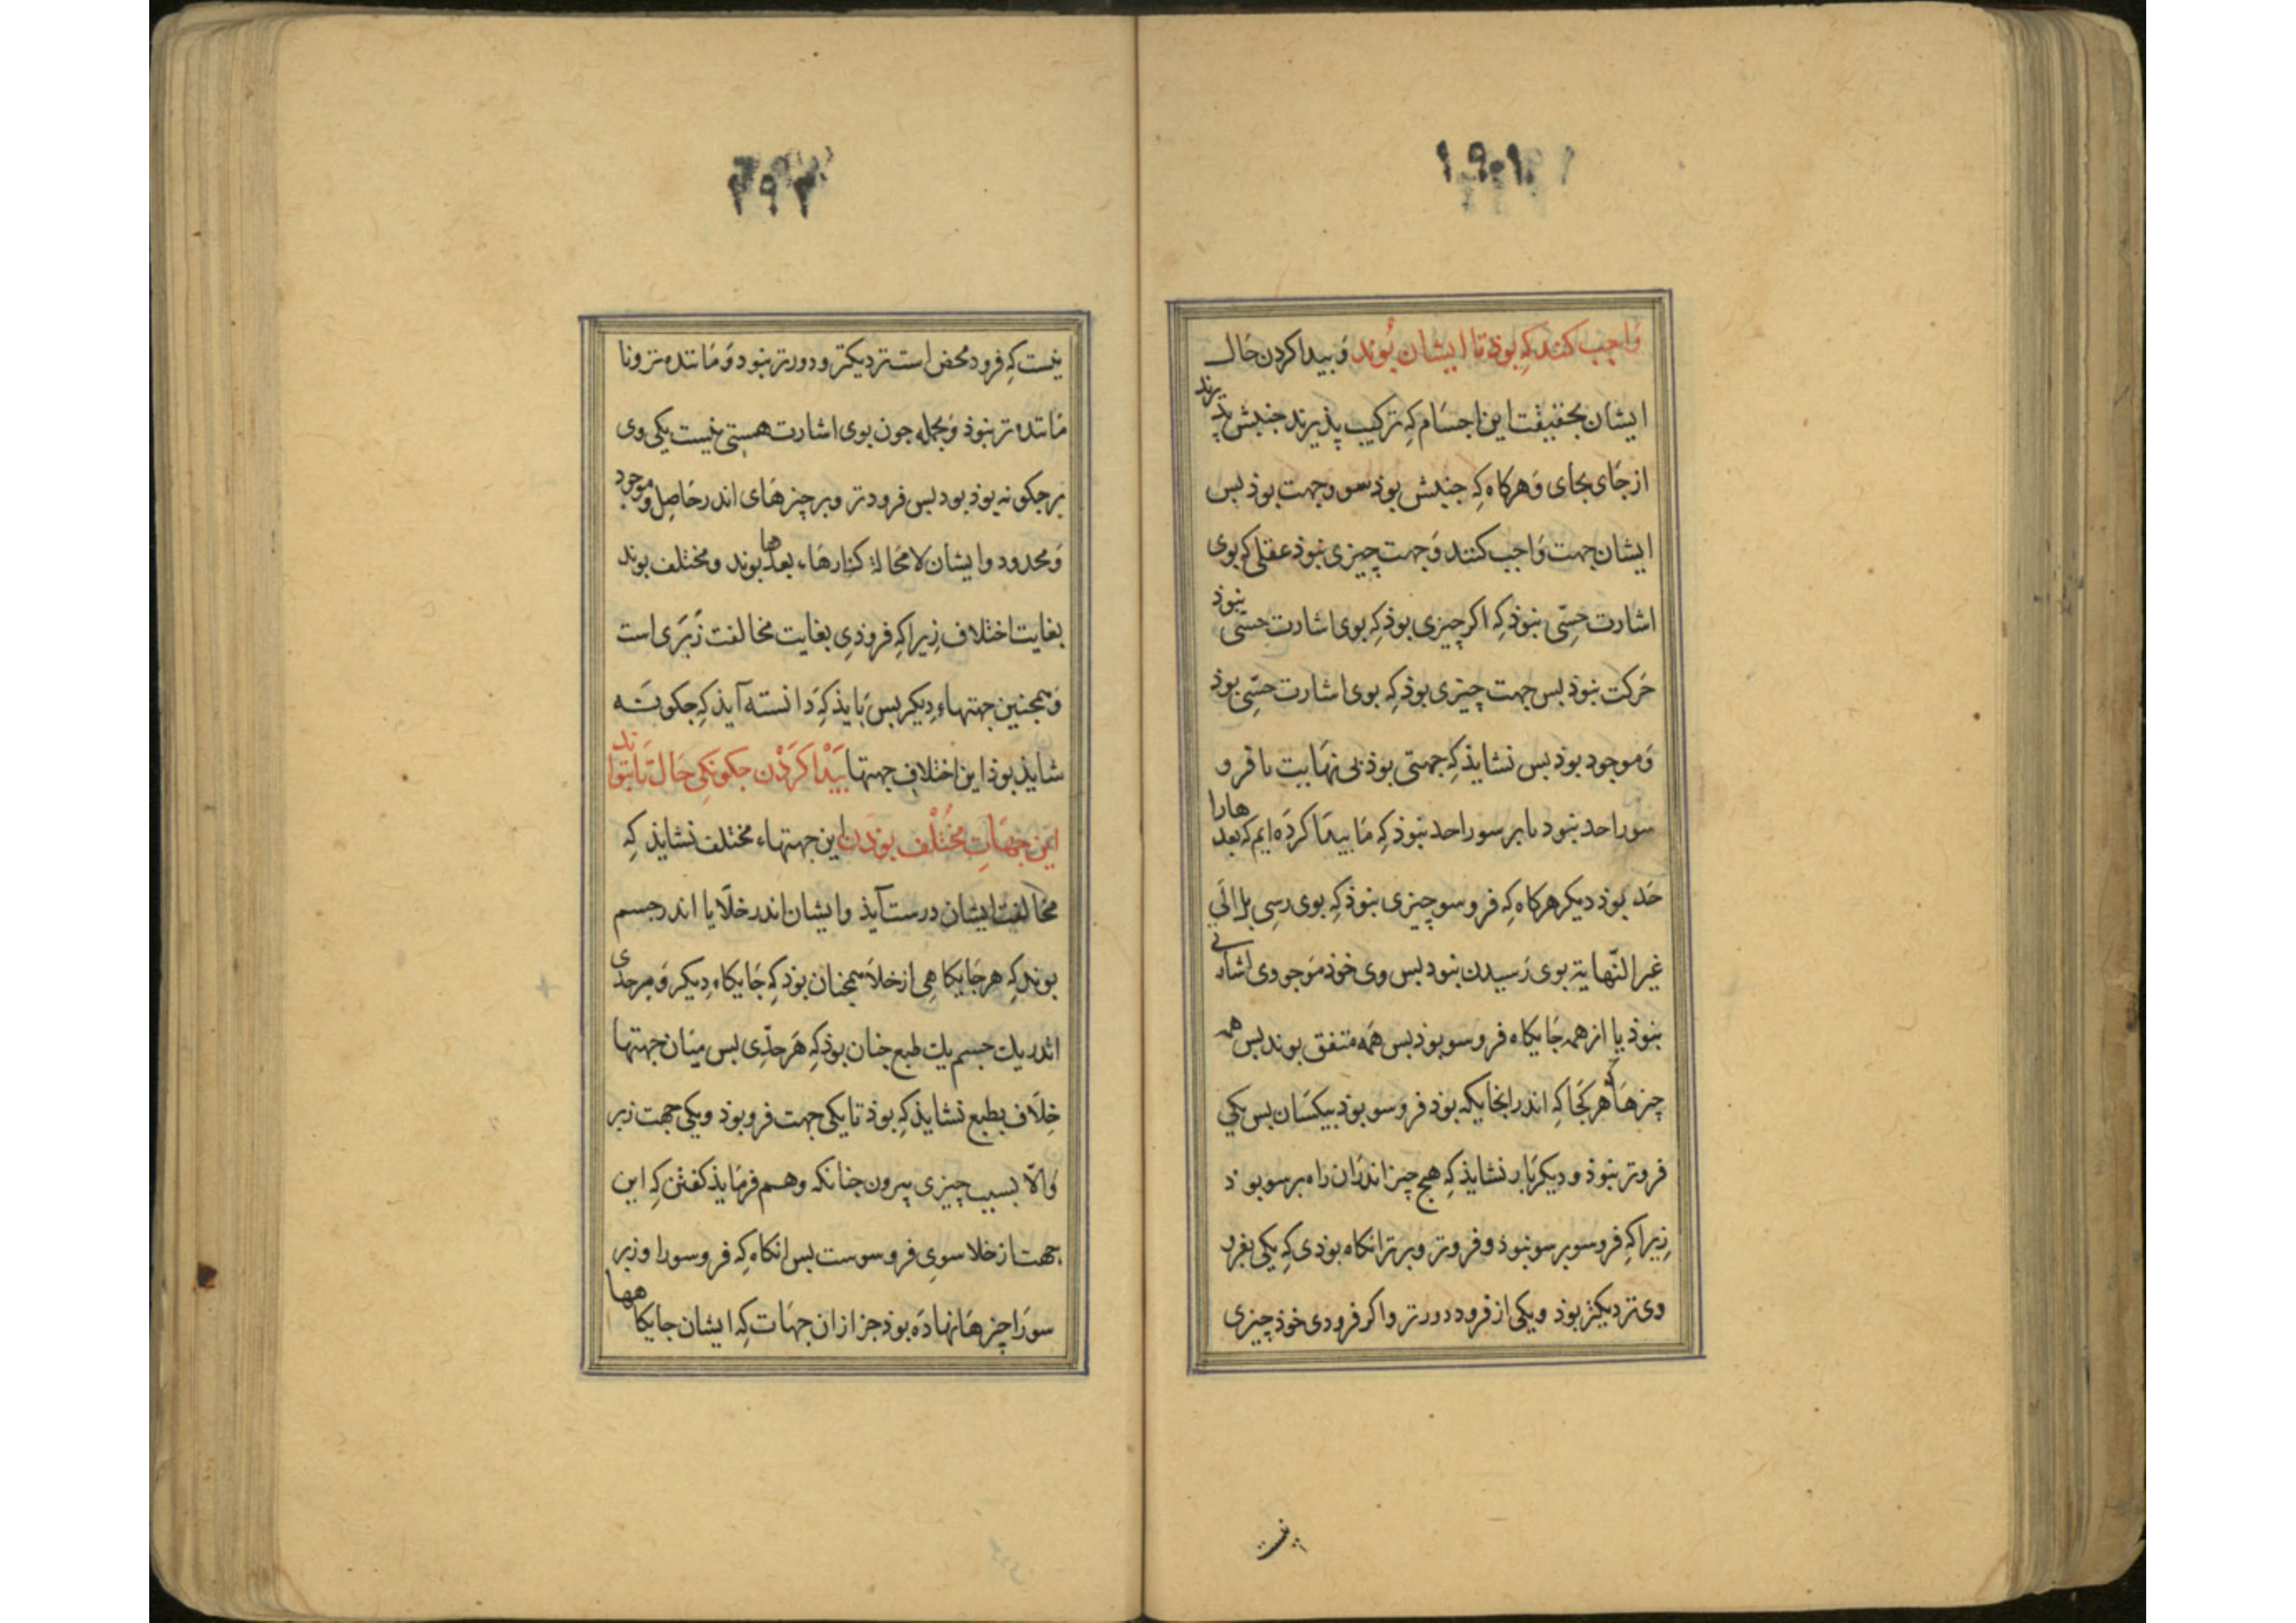 واجب کنند کِه بوذ تا ایشان بُوند وَ بیدا کردن حَال
ایشان بحقیقت این اجسَام کِه ترکیب پذیرند جنبش پذیرند
از جَای بجای وَ هرکاه کِه جنبش بوذ سو و جهت بوذ بس
ایشان جهت وَاجب کنند وَ جهت چیزی نبوذ عقلی که بوی
اشارت حِسّی نبوذ کِه اکر چیزی بوذ کِه بوی اشارت حسّی نبوذ
حَرکت نبوذ بس جهت چیزی بوذ کِه بوی اشارت حسّی بوذ
وَ موجود بوذ بس نشایذ کِه جهتی بوذ بی نهَایت با فرو
سو را حد نبود با بر سو را حد نبوذ کِه مَا بیدَا کردَه ایم که بعدهارا
حَد بوذ دیکر هرکاه کِه فرو سو چیزی نبوذ کِه بوی رسِی بل الَی
غیر النّهایة بوی رَسیدن نبود بس وی خوذ مَوجودی اشارتی
نبوذ یا از همه جَایکاه فرو سو بوذ بس همَه متفق بوند بس همه
چیزهَا هر کجَا کِه اندر انجایکه بوذ فرو سو بوذ بیکسَان بس یکی
فروتر نبوذ و دیکر بَار نشایذ کِه هیچ چیز اندران راه بر سو بوذ
زیرا کِه فرو سو بر سو نبوذ و فروتر و برتر انکاه بوذی کِه یکی بفرو
وی نزدیکتر بوذ و یکی از فرود دورتر و اکر فرودی خوذ چیزی
نیست
۲۹۲
نیست کِه فرود محض است نزدیکتر و دورتر نبود وَ مَانندە تر و نا
مَانندە تر نبوذ وَ بجمله جون بوی اشارت هستی نیست یکی وی
بر جکونه بوذ بود بس فرودتر و بر چیزهَای اندر حَاصِل و موجود
وَ محدود و ایشَان لا محَالة کنارهَاء بعدها بوند و مختلف بوند
بغایت اختلاف زیرا کِه فروذِی بغایت مخالفت زَبَری است
وَ همجنین جهتهاءِ دیکر بس بَایذ کِه دَانستَه آیذ کِه جکونَه
شایذ بوذ این اختلافِ جهتها بَیْدا کَرْدْن جکونکی حَال تا بتوانند
این جِهَاتِ مُخْتَلْف بوذَن این جهتهاء مختلف نشایذ کِه
مخالفت ایشان درست آیذ و ایشان اندر خلَا یا اندر جسم
بوند کِه هر جَایکاهِی از خلَا همجنان بوذ کِه جَایکاه دِیکر وَ هر حدی
اندر یك جسم یك طبع جنان بوذ کِه هَر حدِّی بس میَان جهتها
خِلَاف بطبع نشایذ کِه بوذ تا یکی جهت فرو بوذ و یکی جهت زبر
وَالّا بسبب چیزی بیرون جنانکه وهم فرمَایذ کفتن کِه این
جهت از خلا سویِ فرو سوست بس انکاه کِه فرو سو را و زبر
سورَا چیزهَا نهادَه بوذ جز از ان جهَات کِه ایشان جایکاهها